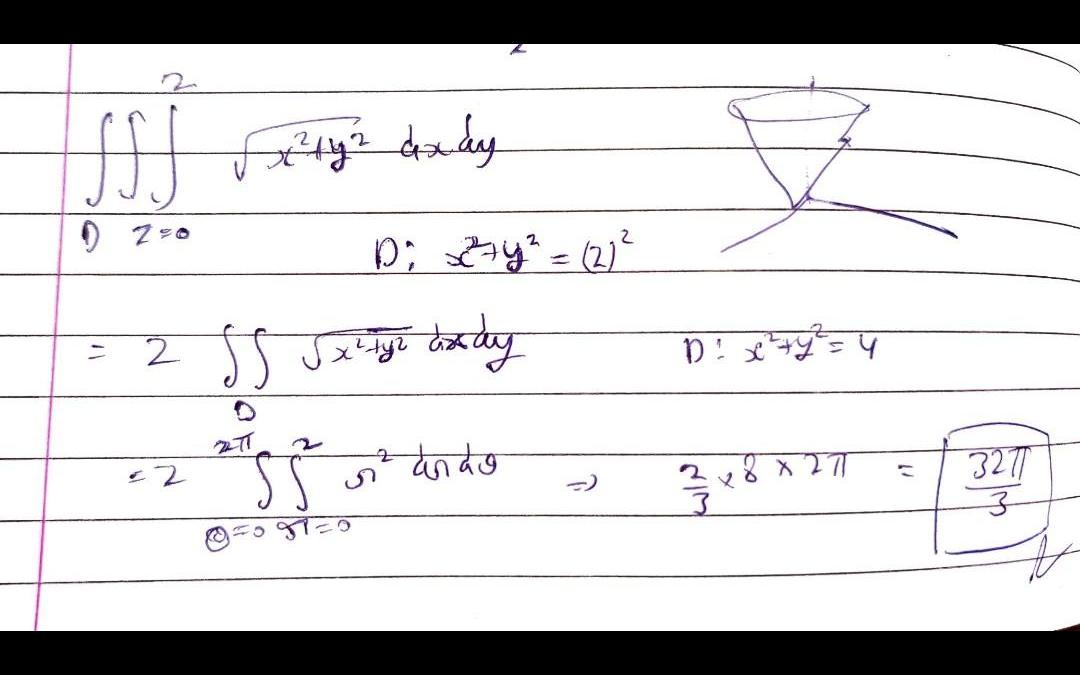 ∫∫∫_{D, z=0}^{2} √(x²+y²) dx dy
D: x²+y² = (2)²
= 2 ∫∫_D √(x²+y²) dx dy D: x²+y² = 4
= 2 ∫_{θ=0}^{2π} ∫_{r=0}^{2} r² dr dθ ⇒ 2/3 × 8 × 2π = 32π/3